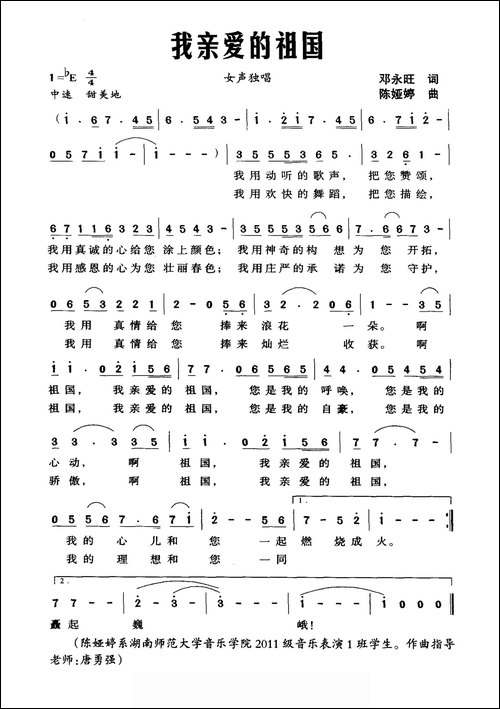 我亲爱的祖国
1=♭E 4/4 女声独唱 邓永旺 词
中速 甜美地 陈娅婷 曲
(i. 6 7. 45 | 6. 543- | i. 2i7. 45 | 6. 7i2-
057ii- | i---) | 3555365. | 355565-
我用动听的歌声, 把您赞颂,
我用欢快的舞蹈, 把您描绘,
我用真诚的心给您 涂上颜色; 我用神奇的构 想为 您 开拓,
我用感恩的心为您 壮丽春色; 我用庄严的承 诺为 您 守护,
0653221 | 2-056 | 32. 206 | 1--35
我用 真情给您 捧来 浪花 一 朵。 啊
我用 真情给您 捧来 灿烂 收 获。 啊
祖国, 我亲爱的 祖国, 您是我的 呼唤, 您是我的
祖国, 我亲爱的 祖国, 您是我的 自豪, 您是我的
33. 335 | ii. 02i56 | 77. 7-
心动, 啊 祖国, 我亲爱的 祖国,
骄傲, 啊 祖国, 我亲爱的 祖国,
1.
05567. 67i | 2--56 | 7-52 | i---
我的 心 儿和 您 一起 燃 烧成 火。
我的 理 想和 您 一同
2.
77-- | 2-3- | 3--- | i--- | i000
矗起 巍 峨!
(陈娅婷系湖南师范大学音乐学院2011级音乐表演1班学生。作曲指导
老师:唐勇强)